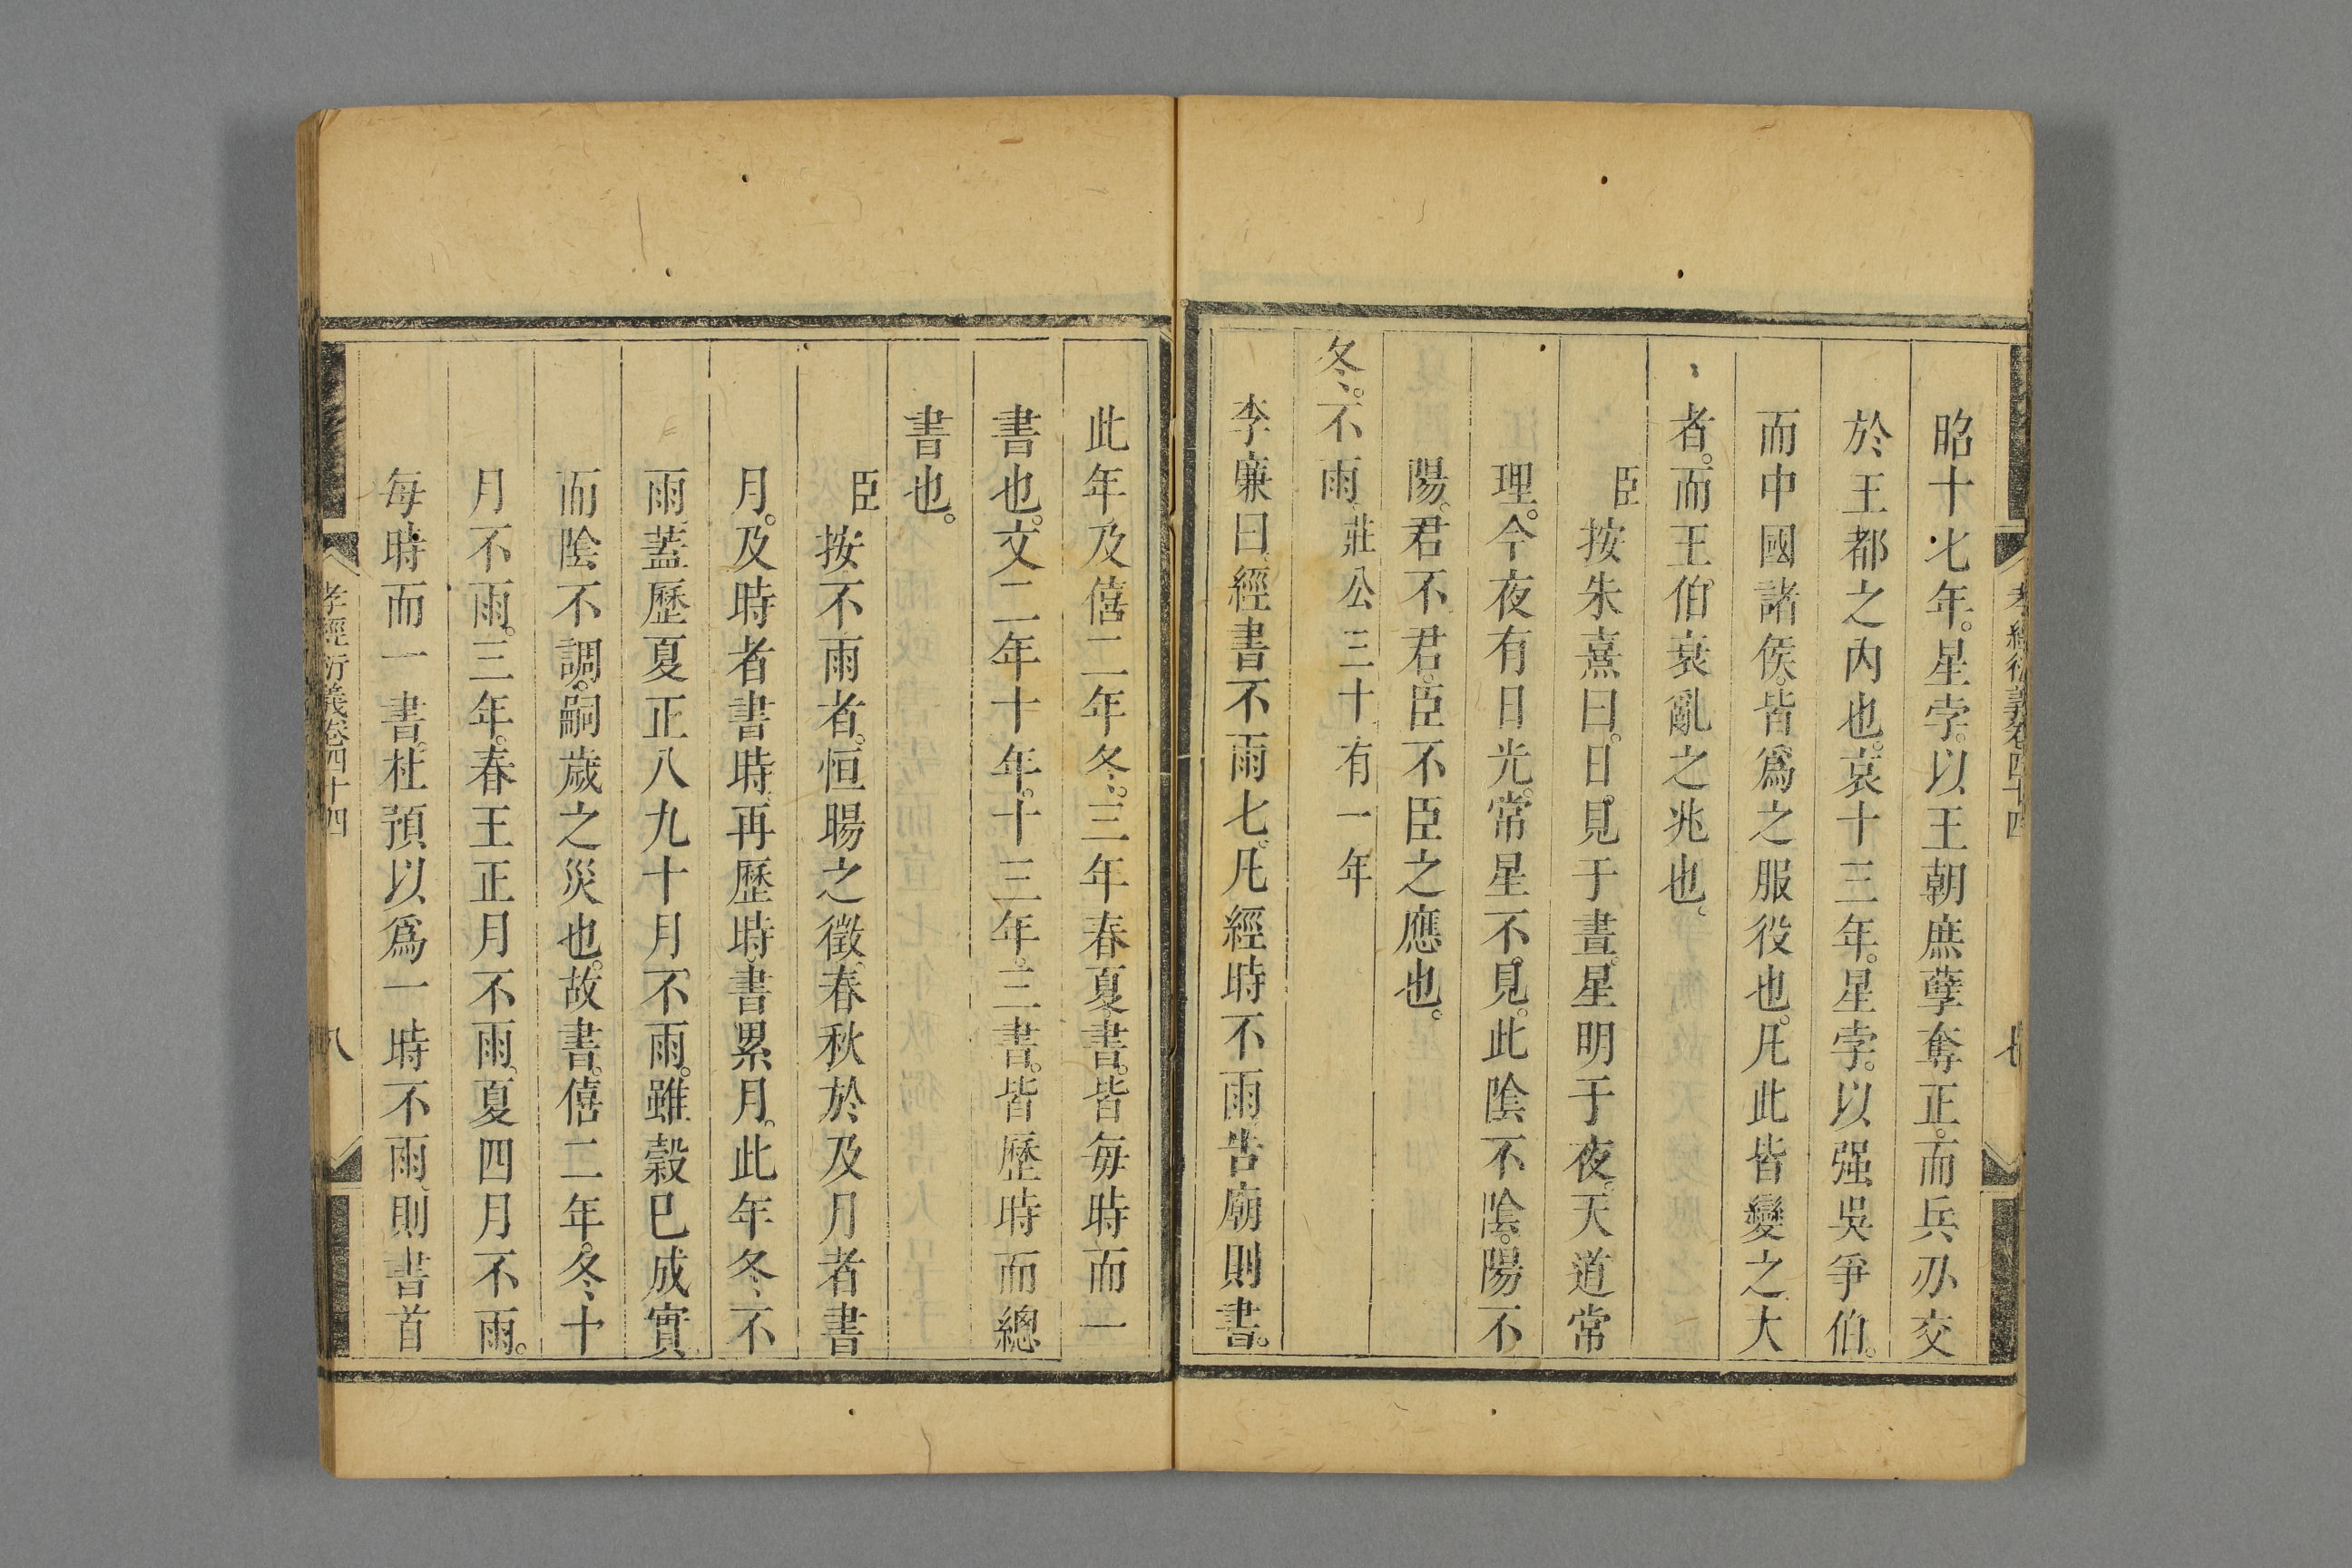 孝經衍義卷四十四
七
昭十七年。星孛。以王朝庶孽奪正。而兵刅交
於王都之內也。哀十三年。星孛。以强吳爭伯。
而中國諸侯。皆爲之服役也。凡此皆變之大
者。而王伯衰亂之兆也。
臣按朱熹曰。日見于晝。星明于夜。天道常
理。今夜有日光。常星不見。此陰不陰。陽不
陽。君不君。臣不臣之應也。
冬。不雨。莊公三十有一年
李廉曰。經書不雨七。凡經時不雨。告廟則書。
此年及僖二年冬。三年春夏書。皆每時而一
書也。文二年十年。十三年。三書。皆歷時而總
書也。
臣按不雨者。恒暘之徵。春秋於及月者書
月。及時者書時。再歷時。書累月。此年冬不
雨。蓋歷夏正八九十月不雨。雖穀巳成實
而陰不調。嗣歲之災也。故書。僖二年。冬十
月不雨。三年。春王正月不雨。夏四月不雨。
每時而一書。杜預以爲一時不雨。則書首
孝經衍義卷四十四
八